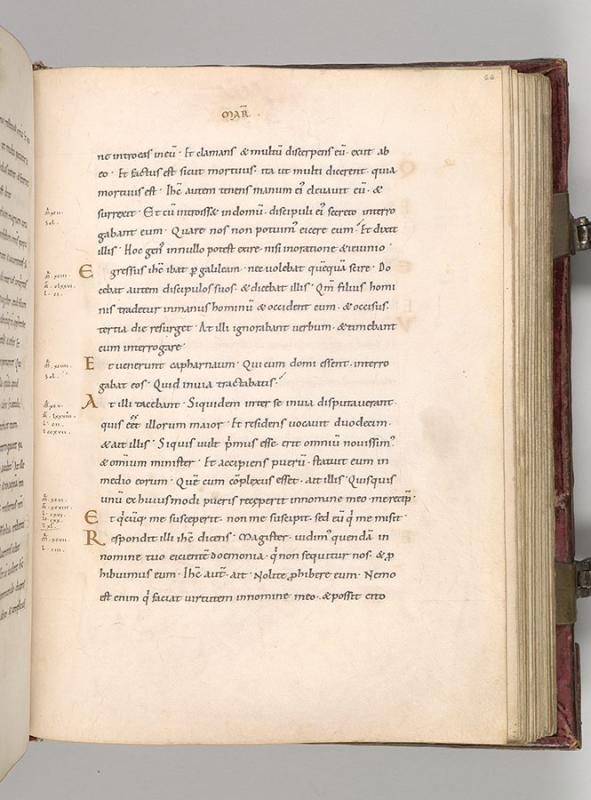 MAR̄
66
ne introeas ineū · Et clamans & multū discerpens eū · exiit ab
eo · Et factus est sicut mortuus · ita ut multi dicerent · quia
mortuus est · Ihc̄ autem tenens manum ei' eleuauit eū · &
surrexit · Et cū introiss& indomū · discipuli ei' secreto interro
gabant eum · Quare nos non potuim' eicere eum · Et dixit
illis · Hoc gen' innullo potest exire · nisi inoratione & ieiunio ·
Egressus ihc̄ ibat p galileam · nec uolebat quēquā scire · Do
cebat autem discipulos suos · & dicebat illis · Qm̄ filius homi
nis tradetur inmanus hominū & occident eum · & occisus ·
tertia die resurget · At illi ignorabant uerbum · & timebant
eum interrogare ·
Et uenerunt capharnaum · Qui cum domi essent · interro
gabat eos · Quid inuia tractabatis ·
At illi tacebant · Siquidem inter se inuia disputauerant ·
quis eēt illorum maior · Et residens uocauit duodecim ·
& ait illis · Siquis uult p̄mus esse · erit omniū nouissim'
& omium minister · Et accipiens puerū · statuit eum in
medio eorum · Quē cum cōplexus esset · ait illis · Quisquis
unū ex huiusmodi pueris receperit innomine meo · me recip̄ ·
Et q̄cūq; me susceperit · non me suscipit · sed eū q̄ me misit ·
Respondit illi ihc̄ dicens · Magister · uidim' quendā in
nomine tuo eicientē doemonia · q̄ non sequitur nos · & p
hibuimus eum · Ihc̄ aut̄ · ait · Nolite phibere eum · Nemo
est enim q̄ faciat uirtutem innomine meo · & possit cito